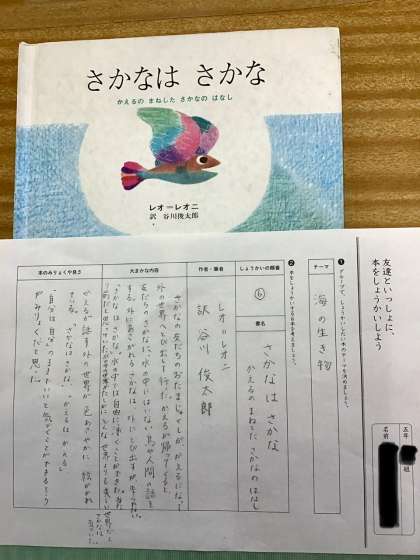 さかなは さかな
かえるの まねした さかなの はなし
レオ=レオニ
訳 谷川俊太郎
友達といっしょに、
本をしょうかいしよう
五年 組
名前
❶ グループで、しょうかいしたい本のテーマを決めましょう。
テーマ
海の生き物
❷ 本をしょうかいする
しょうかいの順番
⑥
書名
さかなは さかな
かえるのまねした さかなのはなし
作者・筆者
レオ=レオニ
訳 谷川 俊太郎
大まかな内容
さかなの友だちのおたまじゃくしが、かえるになって
外の世界へとび出して行った。かえるが帰ってくると、
友だちのさかなに、水の中にはいない、鳥や人間の話を
する。外にあこがれるさかなは、外にとび出すが
さかなは さかな。水の中では自由に泳ぐことができた。
本のみりょくや良さ
かえるが話す外の世界が色あざやかに絵がかれ
ている。「さかなはさかな」「かえるはかえる」
「自分は自分」のままでいいと気づくことができるところ
がみりょくだと思いました。